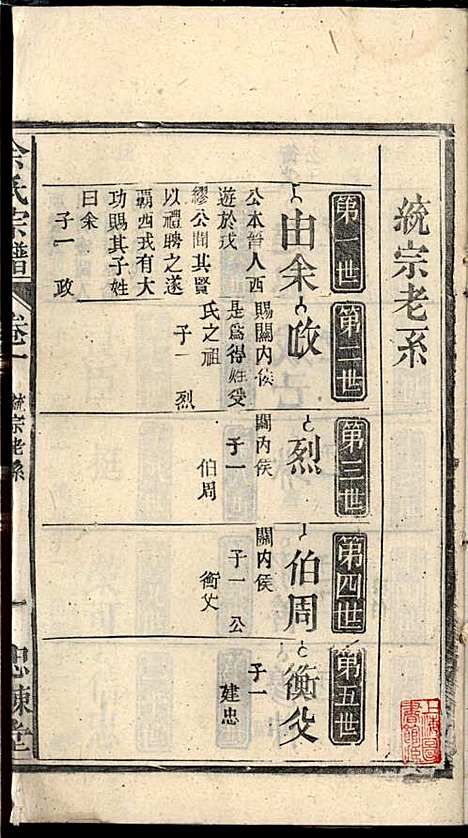 統宗老系
第一世
由余
公本晉人西
遊於戎
繆公聞其賢
以禮聘之遂
霸西戎有大
功賜其子姓
曰余
子一 政
第二世
政
賜關內侯
是為得姓受
氏之祖
子一 烈
第三世
烈
關內侯
子一
伯周
第四世
伯周
關內侯
子一 公
衡父
第五世
衡父
子一
建忠
余氏宗譜
卷一
統宗老系
一
忠諫堂
上海圖
書館藏